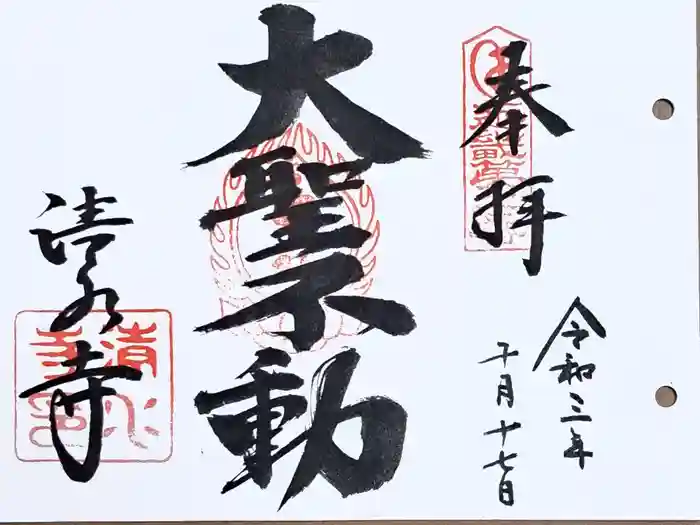 奉拝
令和三年
十月十七日
大聖不動
清水寺